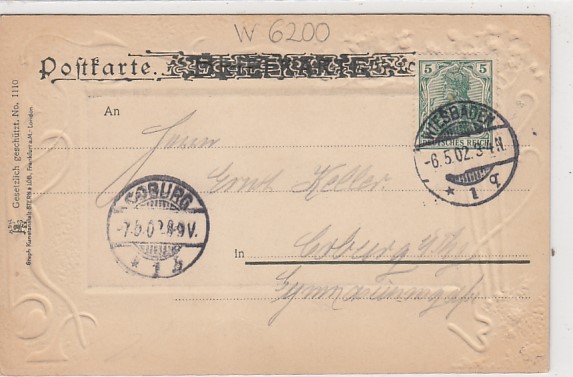 W 6200
Postkarte.
5 5
DEUTSCHES REICH
WIESBADEN
-6.5.02.3-4N.
* 1 q
An
Herrn
Ernst Keller.
COBURG
-7.5.02.8-9V.
* 1 b
In Coburg
Gesetzlich geschützt. No. 1110